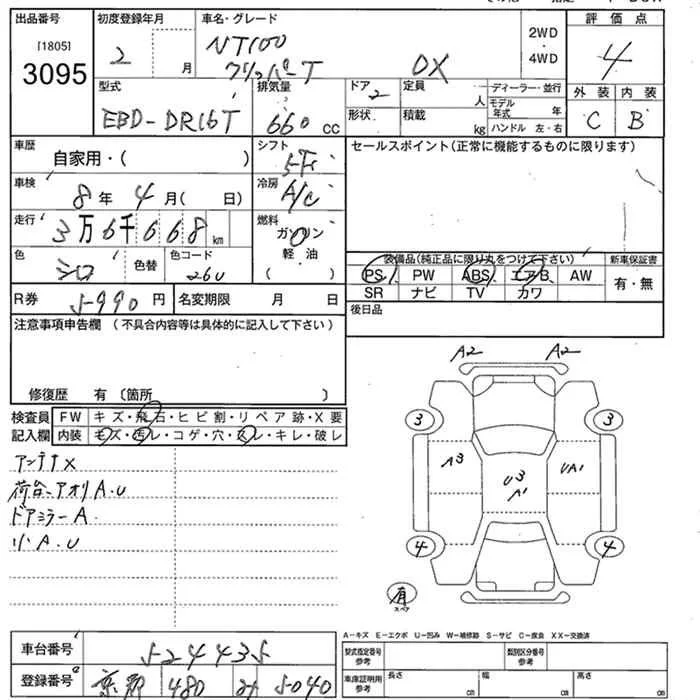 出品番号 初度登録年月 車名・グレード 2WD 評価点
[1805] 2 月 NT100 4WD 4
3095 クリッパーT DX
型式 排気量 ドア 2 定員 人 ディーラー・並行 外装 内装
EBD-DR16T 660 CC 形状 積載 kg モデル年式 年 C B
ハンドル 左・右
車歴 自家用・( ) シフト 5F セールスポイント(正常に機能するものに限ります)
車検 8年 4月( 日) 冷房 A/C
走行 3万6千668km 燃料 ガソリン
色 シロ 色替 色コード 26U 軽油 ( ) 装備品(純正品に限り丸をつけて下さい) 新車保証書
PS PW ABS エアB AW 有・無
R券 5990円 名変期限 月 日 SR ナビ TV カワ
注意事項申告欄 (不具合内容等は具体的に記入して下さい) 後日品
修復歴 有 (箇所 )
検査員 FW キズ・飛石・ヒビ割・リペア跡・X要
記入欄 内装 キズ・汚レ・コゲ・穴・スレ・キレ・破レ
アンテナX
荷台、アオリA.U
ドアミラーA.
小A.U
A2 A2
3 3
A3 U3 UA1
A1
4 4
有
スペア
A-キズ E-エクボ U-凹み W-補修跡 S-サビ C-腐食 XX-交換済
車台番号 524435 型式指定番号 参考 類別区分番号 参考
登録番号 京都 480 5040 車庫証明用 参考 長さ cm 幅 cm 高さ cm